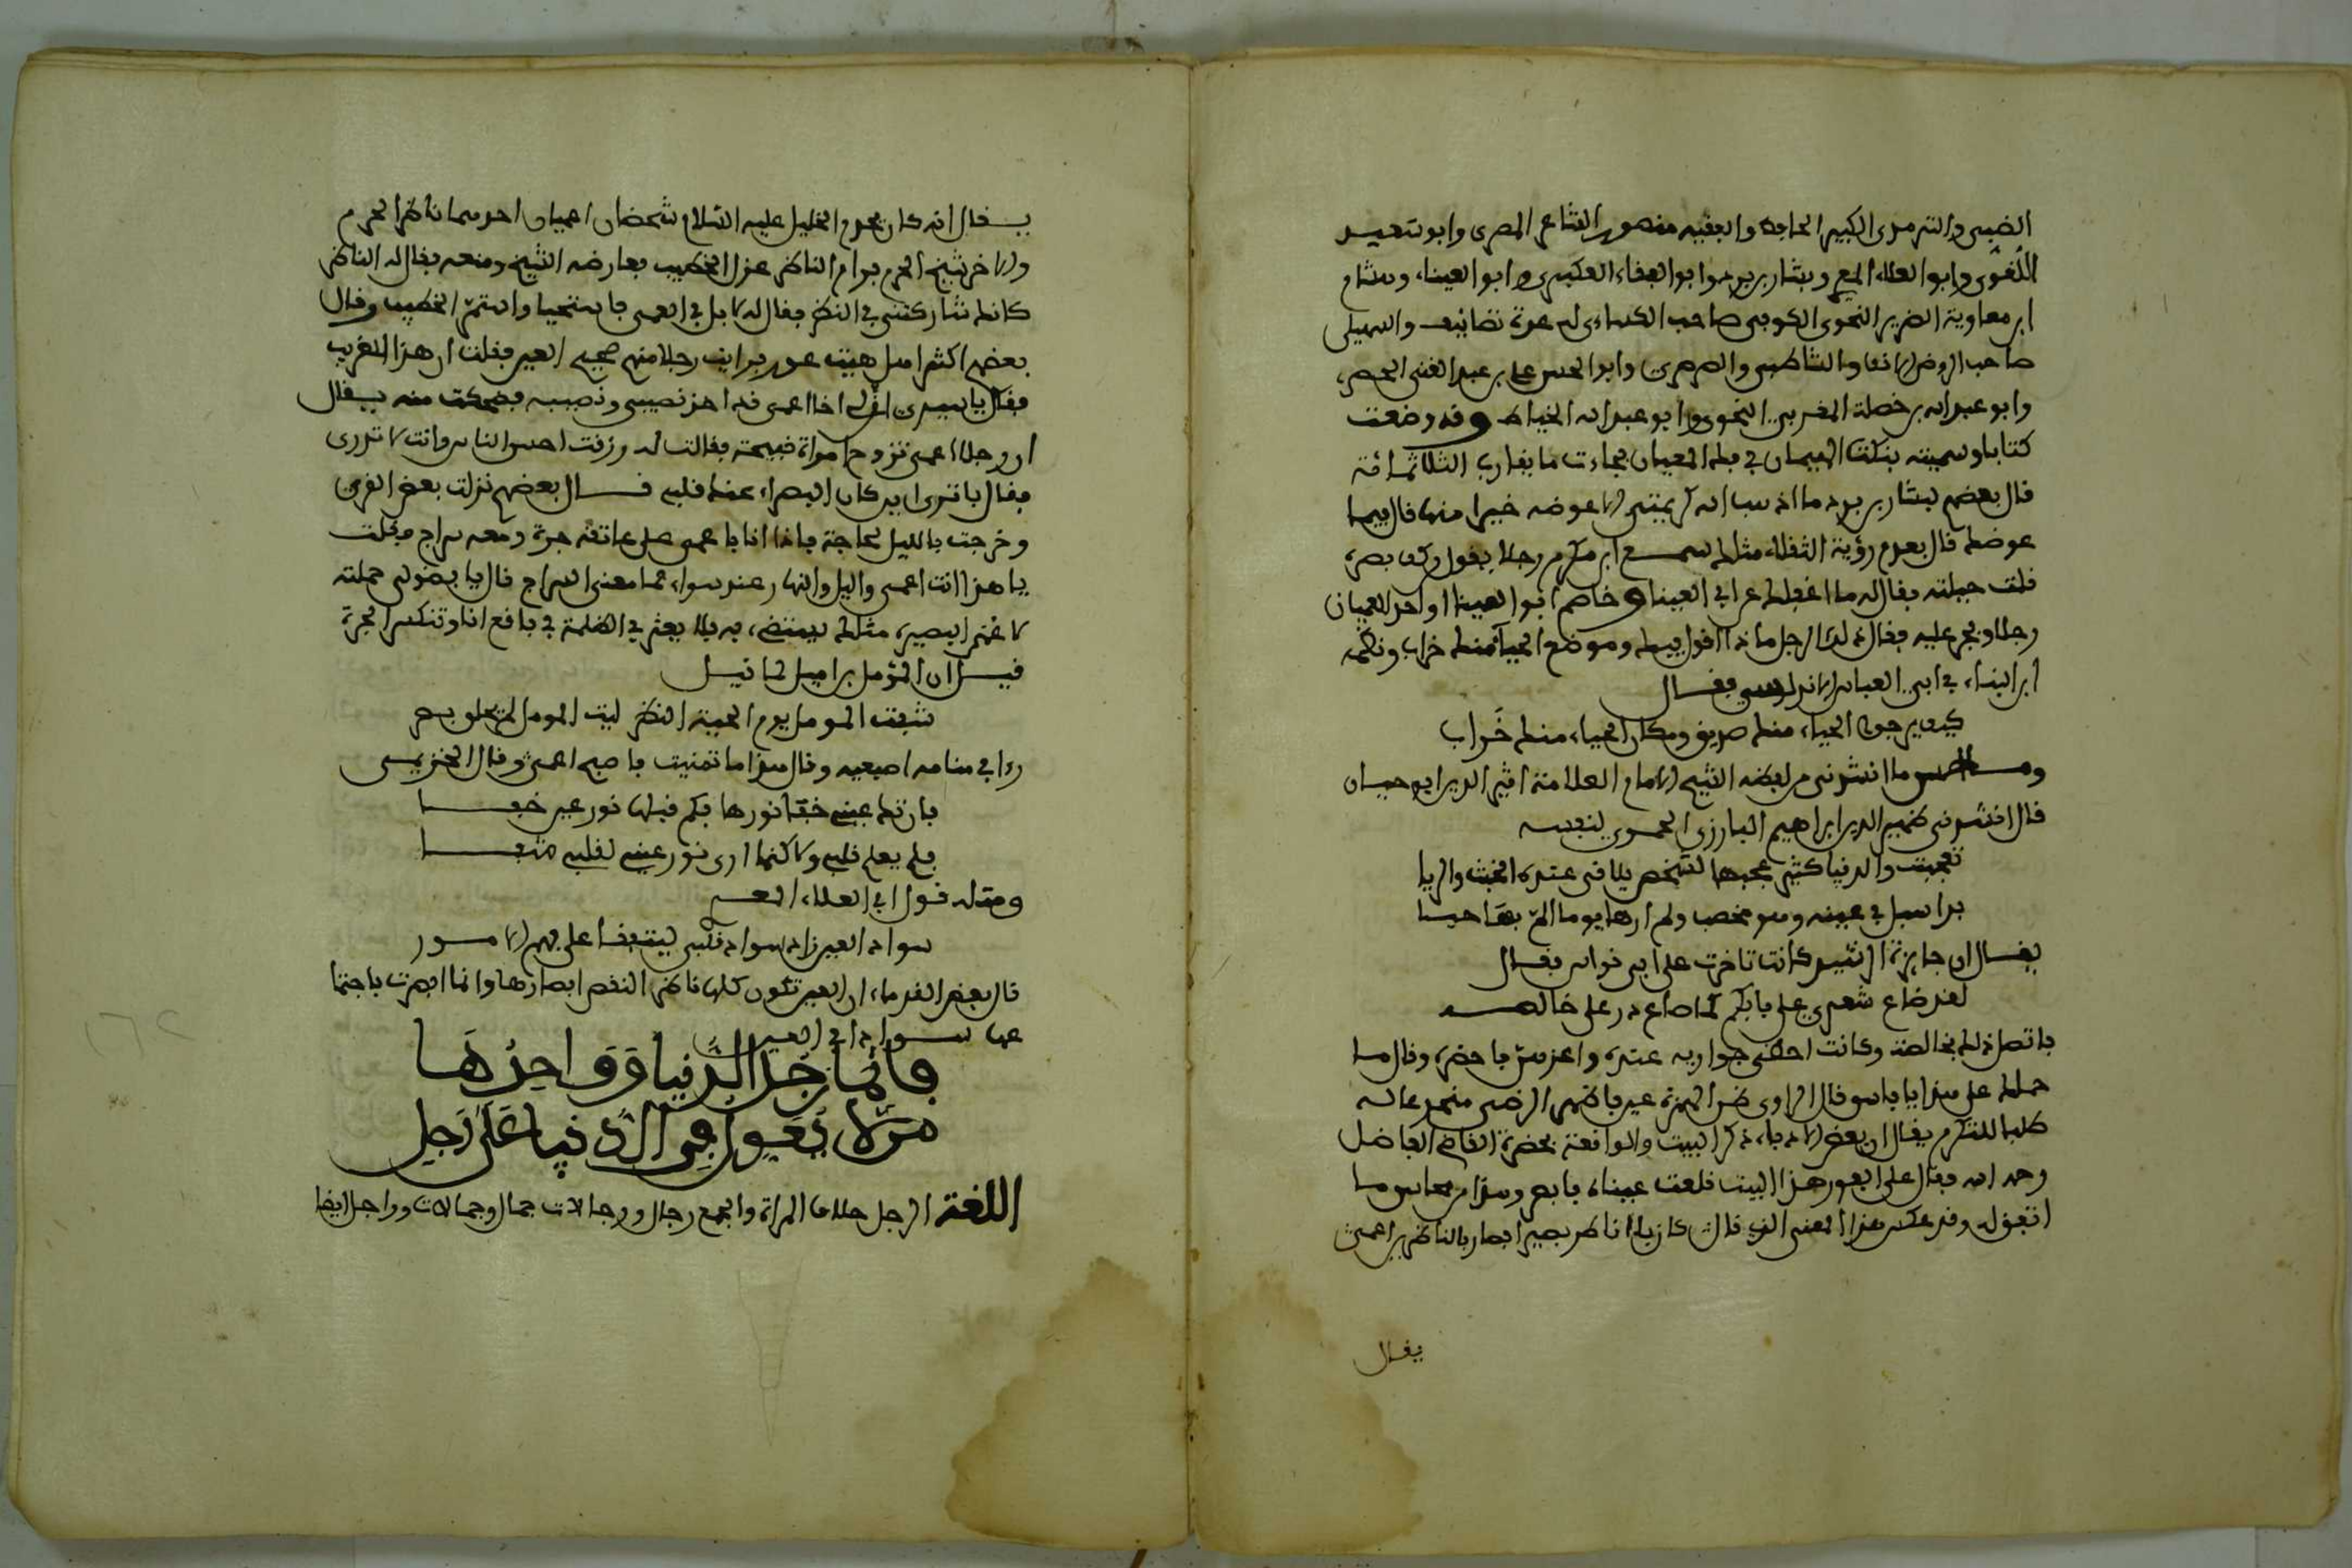 الضبي والترمذي الكبير الحافظ والفقيه منصور الشاعر المصري وابو سعيد
اللغوي وابو العلاء المعري وبشار بن برد وابو البقاء العكبري وابو العيناء وهشام
ابن معاوية الضرير النحوي الكوفي صاحب الكسائي له عدة تصانيف والسهيلي
صاحب الروض الانف والشاطبي والصرصري وابو الحسن علي بن عبد الغني الحصري
وابو عبد الله بن خصلة المغربي النحوي وابو عبد الله الخياط وقد وضعت
كتابا وسميته بنكت الهميان في نكت العميان فجاءت ما يقارب الثلاثمائة
قال بعضهم لبشار بن برد ما اذهب الله كريمتي الا عوضه خيرا منها قال فيما
عوضك قال بعدم رؤية الثقلاء مثلك سمع ابن مكرم رجلا يقول من كف بصره
قلت حيلته فقال له ما اغفلك عن ابي العينا و خاصم ابو العينا او احد العميان
رجلا وفجر عليه فقال ذلك الرجل ماذا اقول فيك وموضع الحيا منك خراب ونظمه
ابن البناء في ابي العباس الاندلسي فقال
كيف يرجو الحياء منك صديق ومكان الحياء منك خراب
ومن ما انشدني من لفظه الشيخ الامام العلامة اثير الدين ابو حيان
قال انشدني ظهير الدين ابراهيم البارزي الحموي لنفسه
تعجبت والدنيا كثير عجيبها لشخص يلاقي عنده الخبث والريا
بدا سبل في عينه وهو مخصب ولم ارها يوما الم بها حيا
يقال ان جارية الرشيد كانت تاخرت على ابي نواس فقال
لقد ضاع شعري على بابكم كما ضاع در على خالصه
فاتصل ذلك بخالصة وكانت احظى جواريه عنده واعزهن فاحضره وقال ما
حملك على هذا يا فاسق قال الراوي ظن الهمزة عين فاظهر الرضى منهم وعاله
طلبا للتكرم يقال ان بعض الادباء ذكر البيت والواقعة بحضرة القاضي الفاضل
رحمه الله فقال على الفور هذا البيت قلعت عيناه فابصر وهذا من محاسن ما
اتفق له وقد عكس هذا المعنى الذي قال كان بلا ناظر بصيرا فصار بالناظرين اعمى
يقال
يقال انه كان بحرم الخليل عليه السلام شخصان اعميان احدهما ناظر الحرم
والاخر شيخ الحرم فرام الناظر عزل الخطيب فعارضه الشيخ ومنعه فقال له الناظر
كانك شاركتني في النظر فقال له لا بل في العمى فاستحيا واستمر الخطيب وقال
بعضهم اكثر اهل هيت عور فرايت رجلا منهم صحيح العين فقلت ان هذا لغريب
فقال يا سيدي ان لي اخا اعمى قد اخذ نصيبي ونصيبه فضحكت منه يقال
ان رجلا اعمى تزوج امراة قبيحة فقالت له رزقت احسن الناس وانت لا تدري
فقال يا ترى اين كان البصراء عنك قبلي قال بعضهم نزلت بعض القرى
وخرجت بالليل لحاجة فاذا انا باعمى على عاتقه جرة ومعه سراج فقلت
يا هذا انت اعمى والليل والنهار عندك سواء فما معنى السراج قال يا فضولي حملته
لاعمى البصيرة مثلك يستضيء به فلا يعثر في الظلمة في فاقع انا وتنكسر الجرة
قيل ان المؤمل بن اميل لما قال
شف المؤمل يوم الحيرة النظر ليت المؤمل لم يخلق له بصر
راى في منامه اصبعين وقال هذا ما تمنيت فاصبح اعمى وقال الخزيمي
فان تك عيني خبا نورها فكم قبلها نور عين خبا
فلم يعم قلبي ولاكنما ارى نور عيني لقلبي سعا
ومثله قول ابي العلاء المعري
سواد العين زاد سواد قلبي ليتفقا على فهم الامور
قال بعض القدماء ان العين تكون كلها ناظر النقص ابصارها وانما ابصرت باجتما
عها سواد في العين
وانما رجل الدنيا وواحدها
من لا يعول في الدنيا على رجل
اللغة الرجل خلاف المراة والجمع رجال ورجالات جمال وجمالات وراجل ايضا